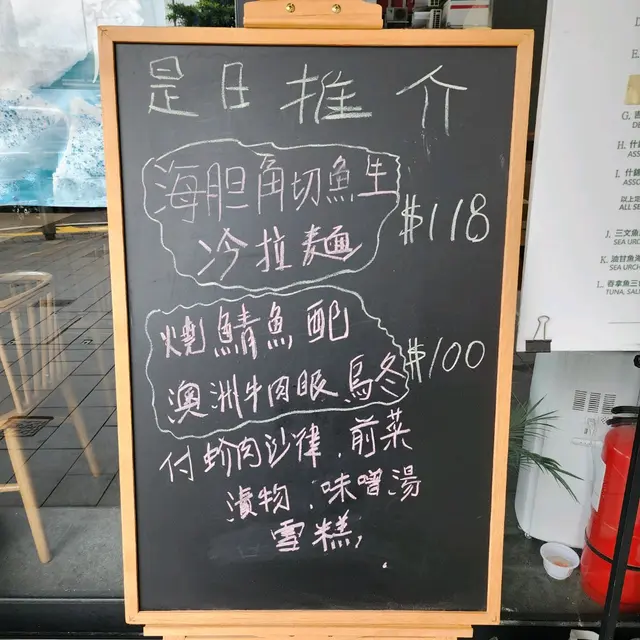 是日推介
海胆角切魚生
冷拉麵
$118
燒鯖魚配
澳洲牛肉眼烏冬
$100
付蚧肉沙律、前菜
漬物、味噌湯
雪糕,
D.
E.
G.
H. 什
ASSO
I. 什錦
ASSO
ALL SE
J. 三文魚
SEA URCH
K. 油甘魚
SEA URC
L. 吞拿魚三
TUNA, SAL